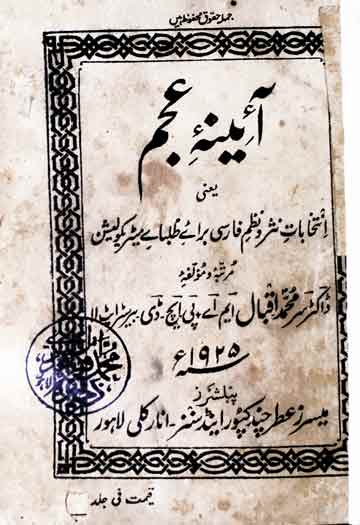 جملہ حقوق محفوظ ہیں
آئینۂ عجم
یعنی
انتخاباتِ نثر و نظم فارسی برائے طلبائے میٹریکولیشن
مرتبہ و مؤلفہ
ڈاکٹر سر محمد اقبال ایم اے۔ پی ایچ۔ ڈی۔ بیرسٹر ایٹ لا
سنہ ۱۹۲۵ء
پبلشرز
میسرز عطر چند کپور اینڈ سنز۔ انار کلی لاہور
قیمت فی جلد